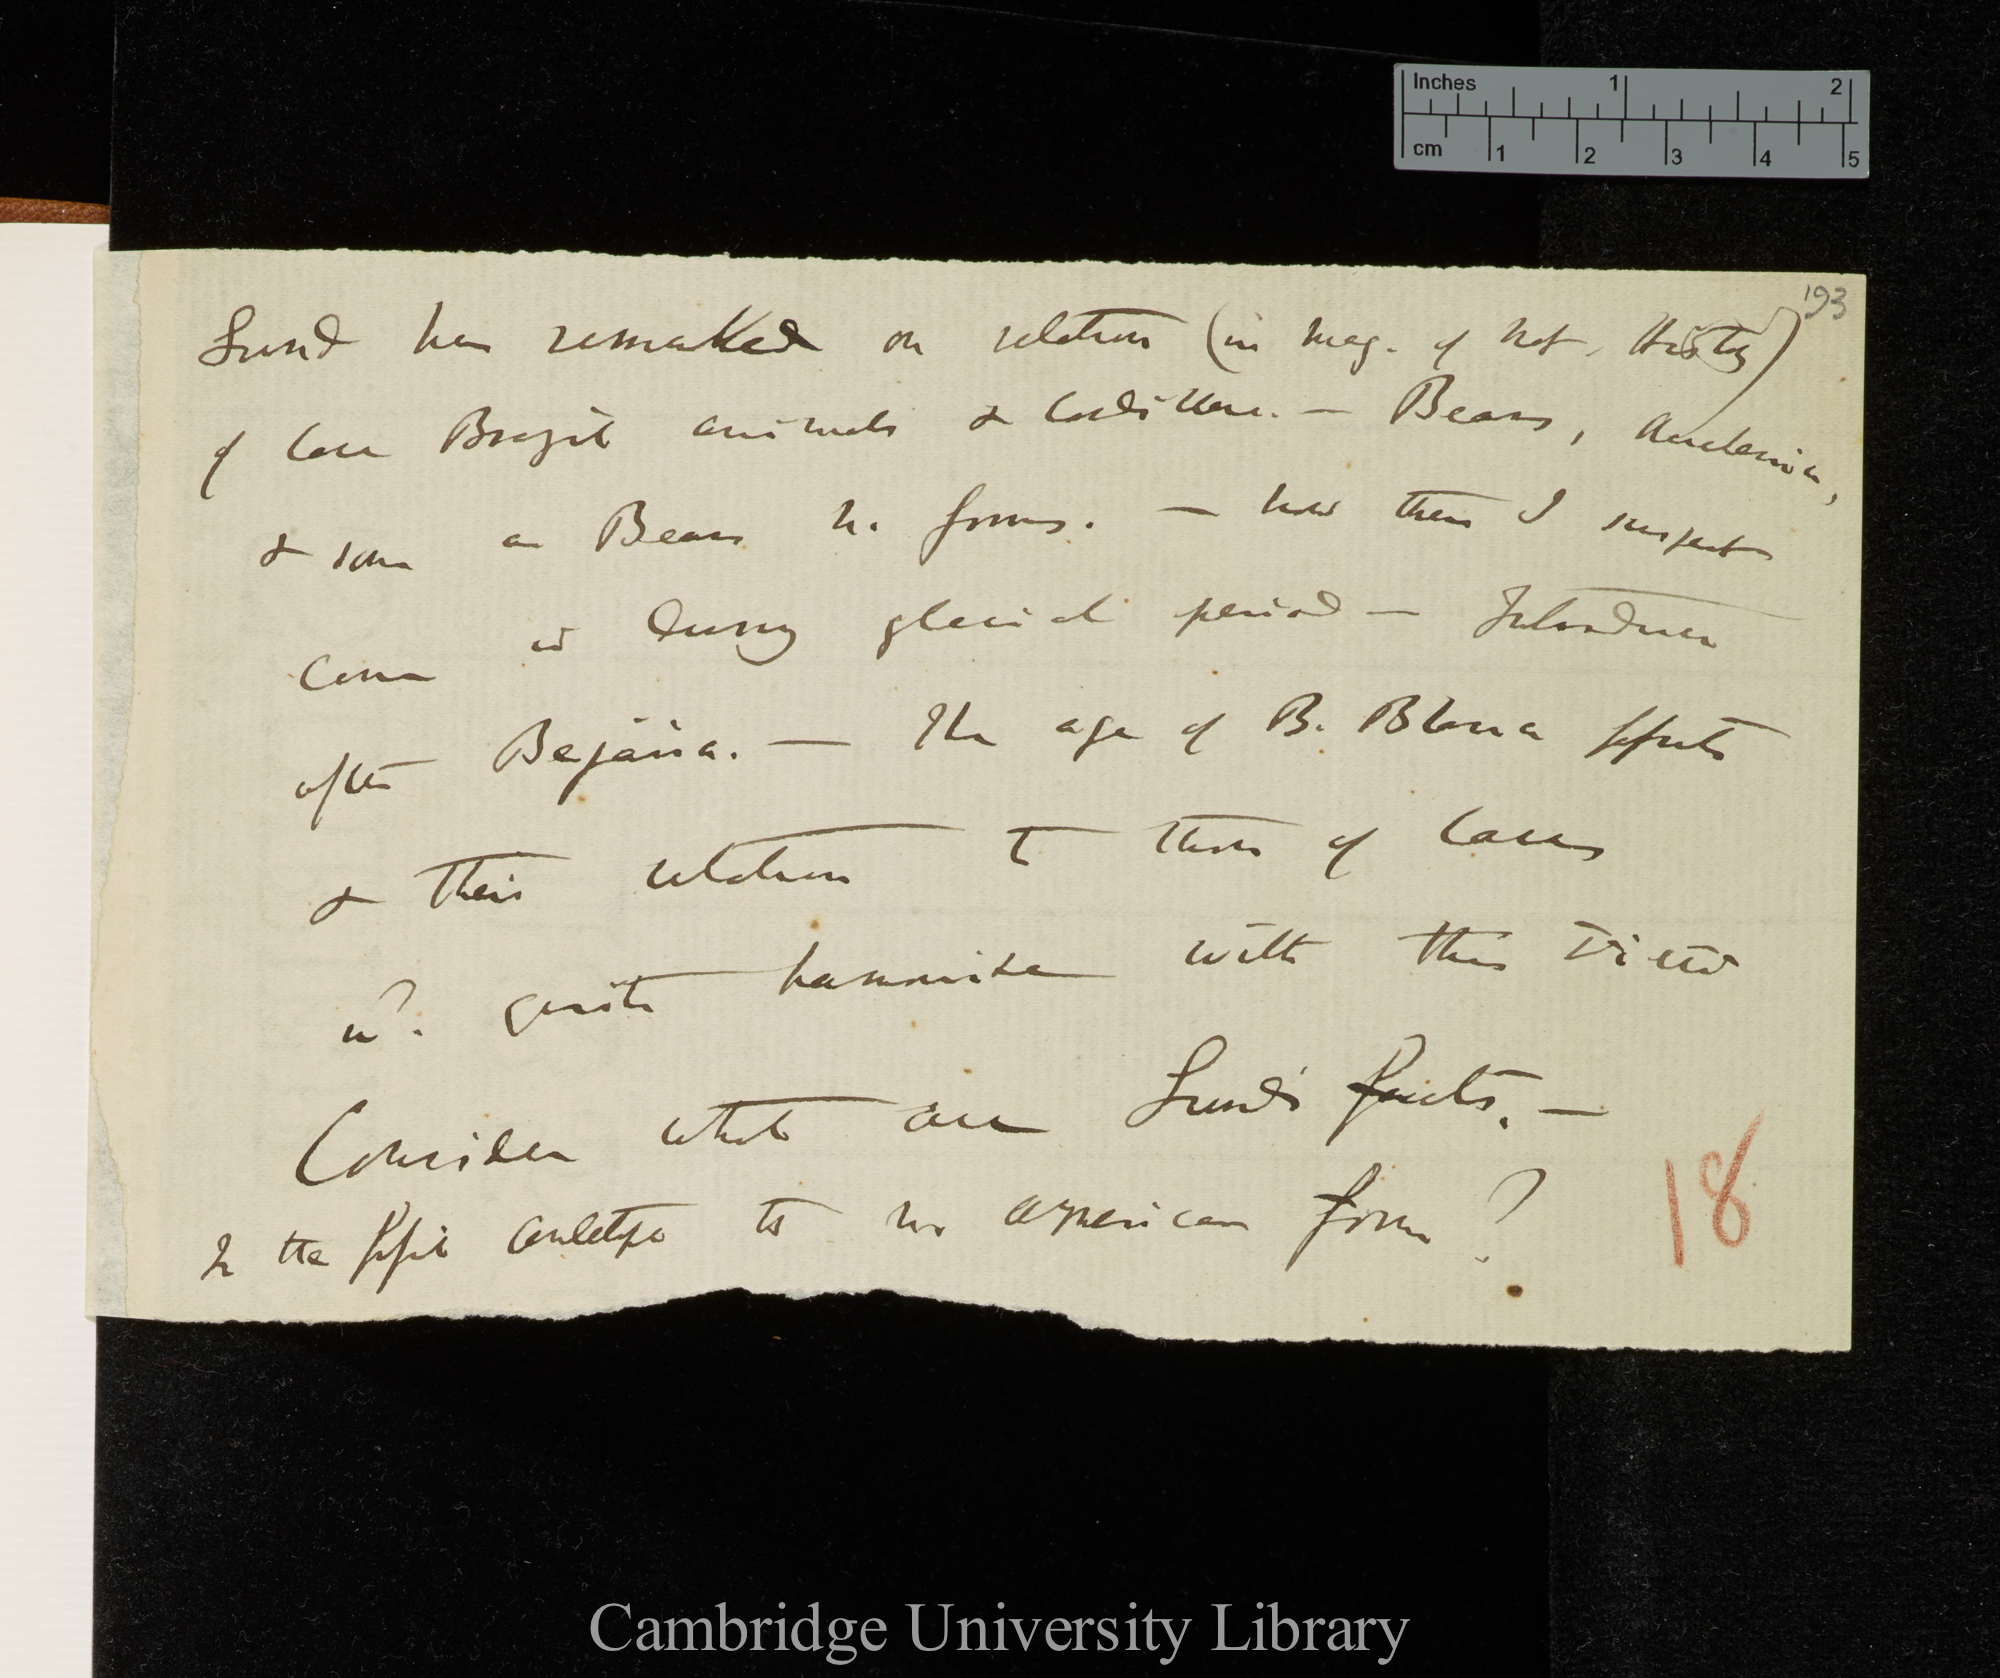 Inches 1 2
cm 1 2 3 4 5
193
Lund has remarked on relation (in Mag. of Nat. History)
of Cave Brazil animals & Cordillera. — Bears, Auchenia,
& some a Bears N. forms. — now these I suspect
came is during glacial period — Introduction
after Bejaria. — The age of B. Blanca fossils
& their relation to those of Caves
wd. quite harmonise with this view
Consider what are Lund's facts. —
Is the fossil antelope to no American form?
18
Cambridge University Library